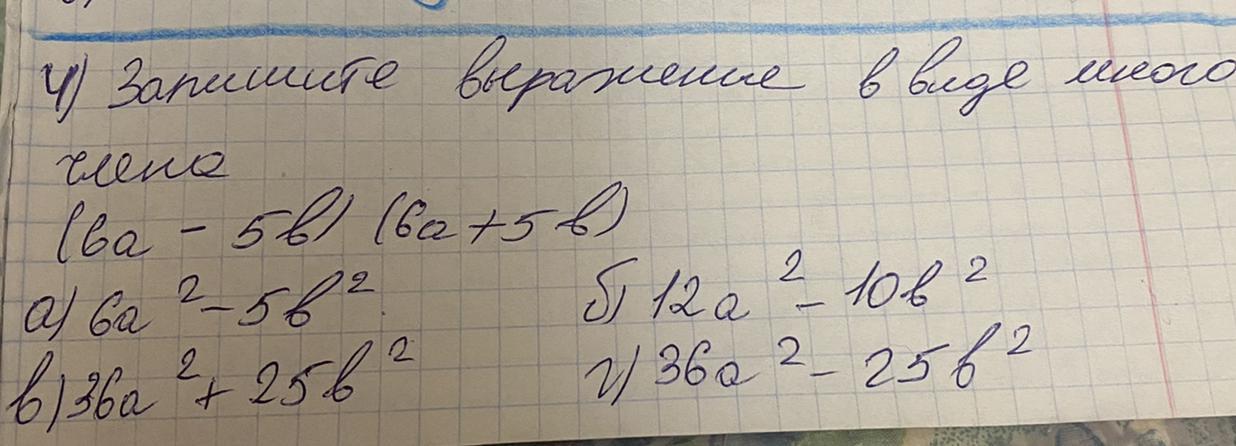 4) Запишите выражение в виде много
члена
(6а - 5в) (6а + 5в)
а) 6а² - 5в² б) 12а² - 10в²
в) 36а² + 25в² г) 36а² - 25в²